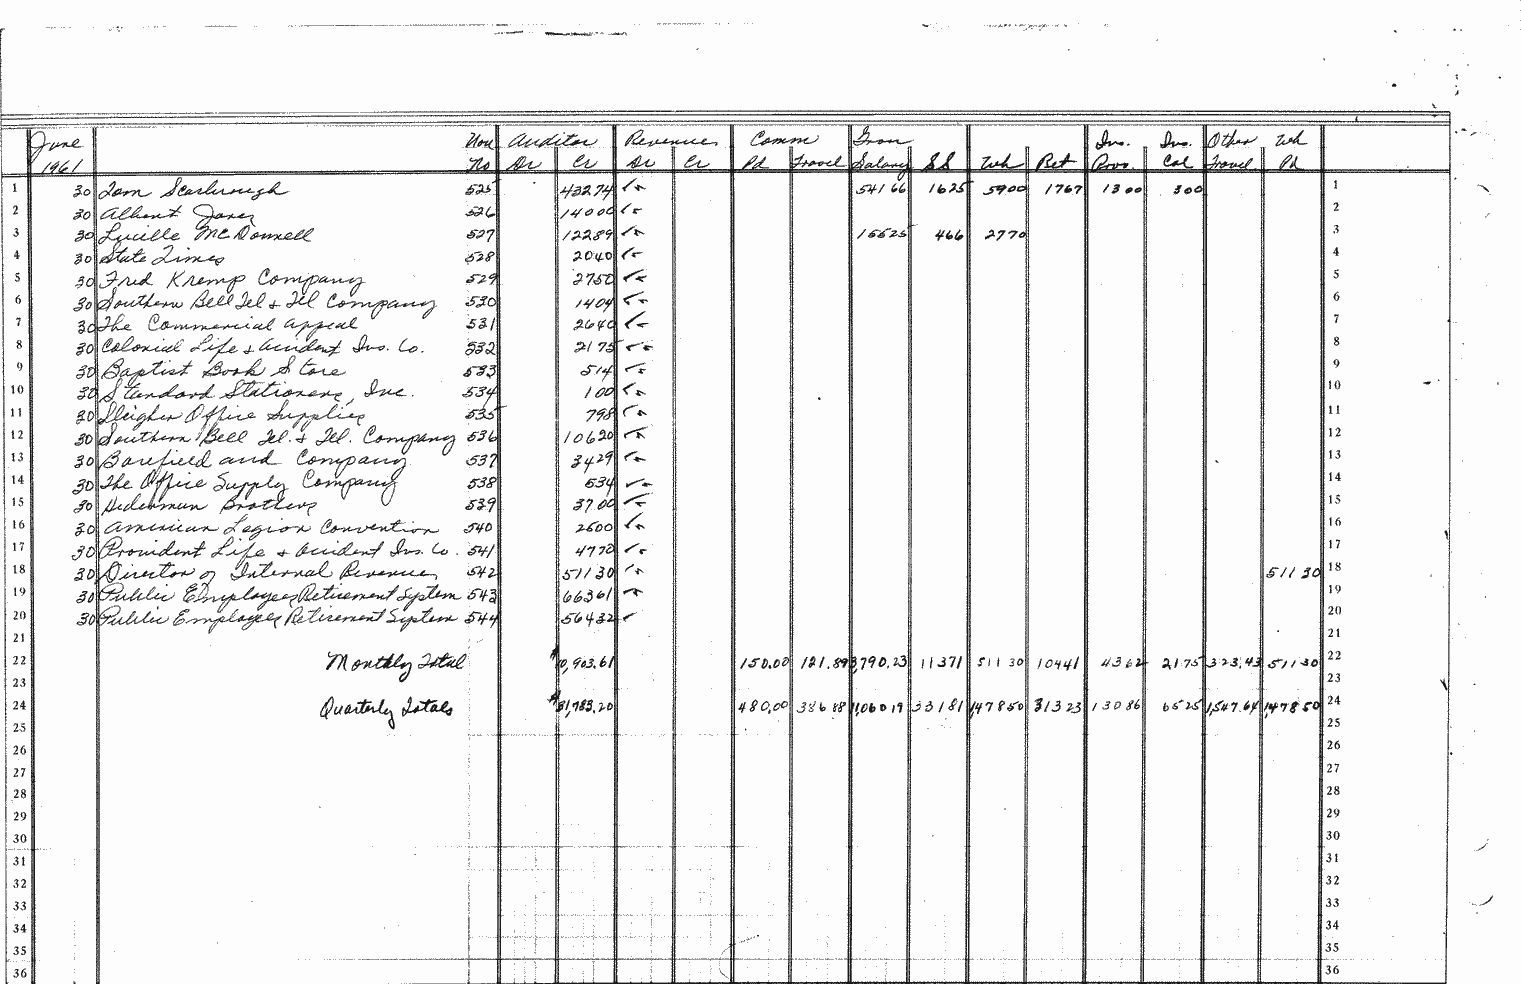 June Vou Auditor Revenue Comm Gron Ins. Ins. Other Wh
1961 No Dr Cr Dr Cr Pd Travel Salary SS Wh Ret Prov. Col Travel Pd
1 30 Tom Scarbrough 525 432 74 541 66 16 25 59 00 17 67 13 00 3 00 1
2 30 Albert Jones 526 140 00 2
3 30 Lucille McDonnell 527 122 89 155 25 4 66 27 70 3
4 30 State Times 528 20 40 4
5 30 Fred Kremp Company 529 27 50 5
6 30 Southern Bell Tel & Tel Company 530 14 04 6
7 30 The Commercial Appeal 531 26 40 7
8 30 Colonial Life & Accident Ins. Co. 532 21 75 8
9 30 Baptist Book Store 533 5 14 9
10 30 Standard Stationers, Inc. 534 1 00 10
11 30 Sleigher Office Supplies 535 7 98 11
12 30 Southern Bell Tel. & Tel. Company 536 106 20 12
13 30 Barefield and Company 537 34 29 13
14 30 The Office Supply Company 538 5 34 14
15 30 Hederman Brothers 539 37.00 15
16 30 American Legion Convention 540 26 00 16
17 30 Provident Life & Accident Ins. Co. 541 47 70 17
18 30 Director of Internal Revenue 542 511 30 511 30 18
19 30 Public Employees Retirement System 543 663 61 19
20 30 Public Employees Retirement System 544 564 32 20
21 21
22 Monthly Total 150.00 121.89 3,790.23 113 71 511 30 104 41 43 62 21 75 323.43 511 30 22
23 23
24 Quarterly Totals $31,783.20 480.00 386 88 11,060 19 331 81 1,478 50 313 23 130 86 65 25 1,547.64 1,478 50 24
25 25
26 26
27 27
28 28
29 29
30 30
31 31
32 32
33 33
34 34
35 35
36 36